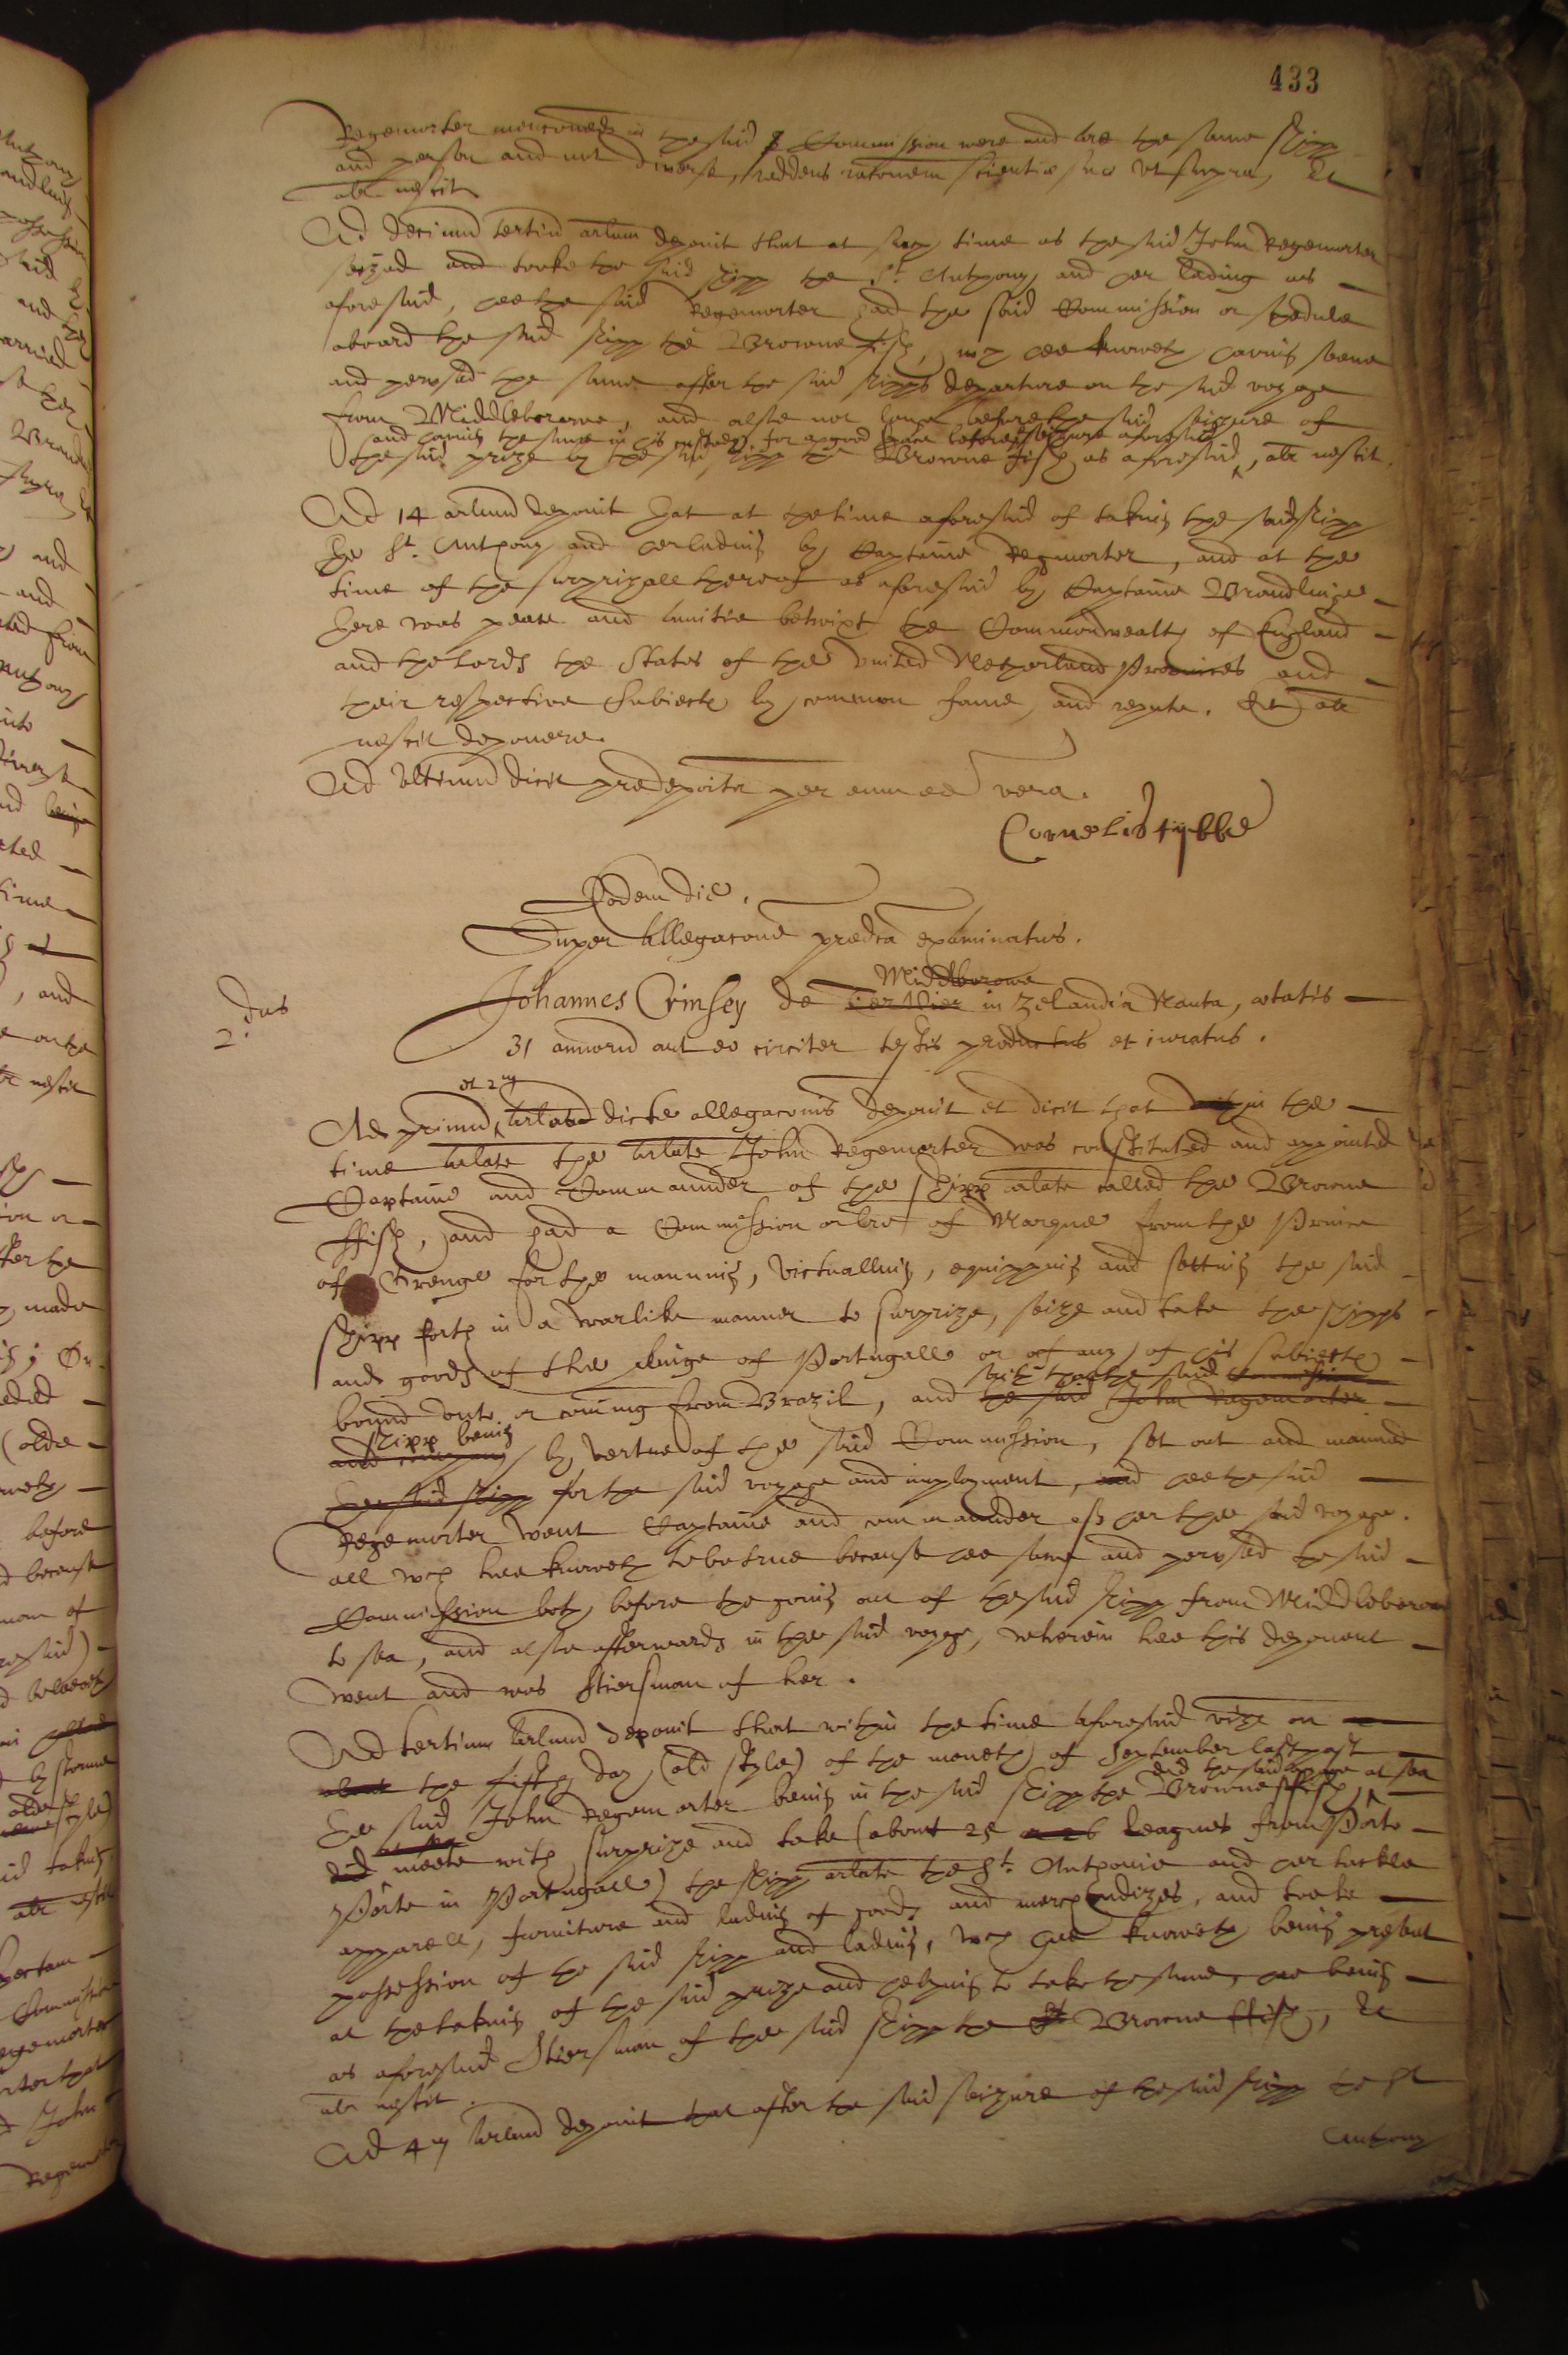 433
Regemorter mencioned in the said Commission were and are the same shipp
and person and not diverse, reddens rationem scientiæ suæ ut supra, Et
alr nescit
Ad decimũ tertiũ arlum deponit that at such time as the said John Regemorter
seized and tooke the said shipp the St. Anthony and her lading as
aforesaid, hee the said Regemorter had the said Commission or schedule
aboard the said shipp the Browne Fish, wch hee knoweth having seene
and perused the same after the said shipps departure on the said voyage
from Middleborowe, and alsoe not long before the said seizure of
and having the same in his custody for a good space before seizure aforesaid
the said prize by the said shipp the Browne Fish as aforesaid, alr nescit.
Ad 14 arlum deponit that at the time aforesaid of taking the said shipp
the St. Anthony and her lading by Captaine Regmorter, and at the
time of the surprizall thereof as aforesaid by Captaine Brandlinge
there was peace and Amitie betwixt the Commonwealth of England
and the Lords the States of the United Netherland Provinces and
their respective Subiects by common fame, and repute. Et alr
nescit deponere.
Ad ultimũ dicit predeposita per eum ee vera.
Cornelis tybbe
Eodem die.
Super allegacone prædca examinatus.
2dus
Middleborowe
Johannes Crinsey de in Zelandia Nauta, ætatis
31 annorũ aut eo circiter testis productus et iuratus.
et 2um
Ad primũ arlum dicte allegaconis deponit et dicit that within the
time arlate the arlate John Regemorter was constituted and appointed
Captaine and Commaunder of the shipp arlate called the Browne
ffish, and had a Commission or lre of Marque from the Prince
of Orenge for the manning, victualling, equipping and setting the said
shipp forth in a warlike manner to surprize, seize and take the shipps
and goods of the Kinge of Portugall or of any of his subiects
saith that the said Commission
bound onto or coming from Brazil, and the said John Regemorter
shipp being
and company by vertue of the said Commission, set out and manned
the said shipp for the said voyage and imployment, and hee the said
Regemorter went Captaine and commaunder of her the said voyage.
all wch hee knoweth to be true because hee sawe and perused the said
Commission both before the going out of the said shipp from Middleborow
to sea, and alsoe afterwards in the said voyage, wherein hee this deponent
went and was Stiersman of her.
Ad tertium arlum deponit that within the time aforesaid vizt on
about the fifth day (old style) of the moneth of September last past
did the said at sea
hee said John Regemorter being in the said shipp the Browne ffish,
did meete with surprize and take (about 25 or 26 leagues from Porto
Porte in Portugall) the shipp arlate the St. Anthonie and her tackle
apparell, furniture and lading of goods and merchandizes, and tooke
possession of the said shipp and lading, wch hee knoweth being present
at the taking of the said prize and helping to take the same, hee being
as aforesaid Stiersman of the said shipp the Browne ffish, Et
alr nescit.
Ad 4um arlum deponit that after the said seizure of the said shipp the St
Anthony